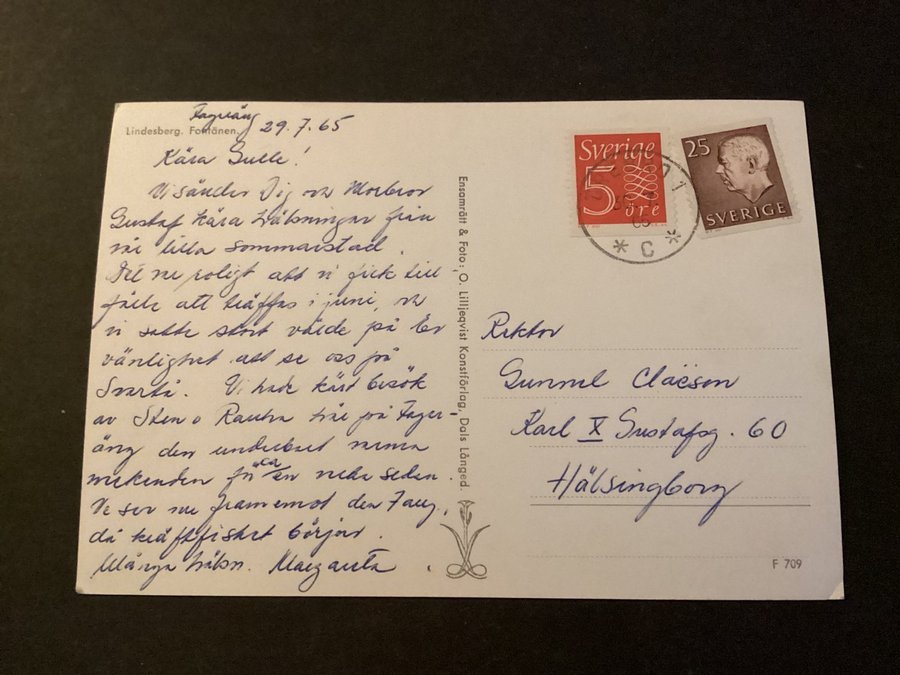 Lindesberg. Fontänen.
Fageräng
29.7.65
Kära Gulle!
Vi sänder Dig och Morbror
Gustaf kära hälsningar från
vår lilla sommarstad.
Det var roligt att vi fick till
fälle att träffas i juni, och
vi satte stort värde på Er
vänlighet att se oss på
Svartå. Vi hade kärt besök
av Sten o här på Fager-
äng den underbart varma
weekenden för ca en vecka sedan.
Vi ser nu framemot den 7 aug.
då kräftfisket börjar.
Många hälsn. Margareta.
Ensamrätt & Foto: O. Lilljeqvist Konstförlag, Dals Långed.
Sverige
5
öre
25
SVERIGE
1
65
* C *
Rektor
Gunnel Claëson
Karl X Gustafsg. 60
Hälsingborg
F 709